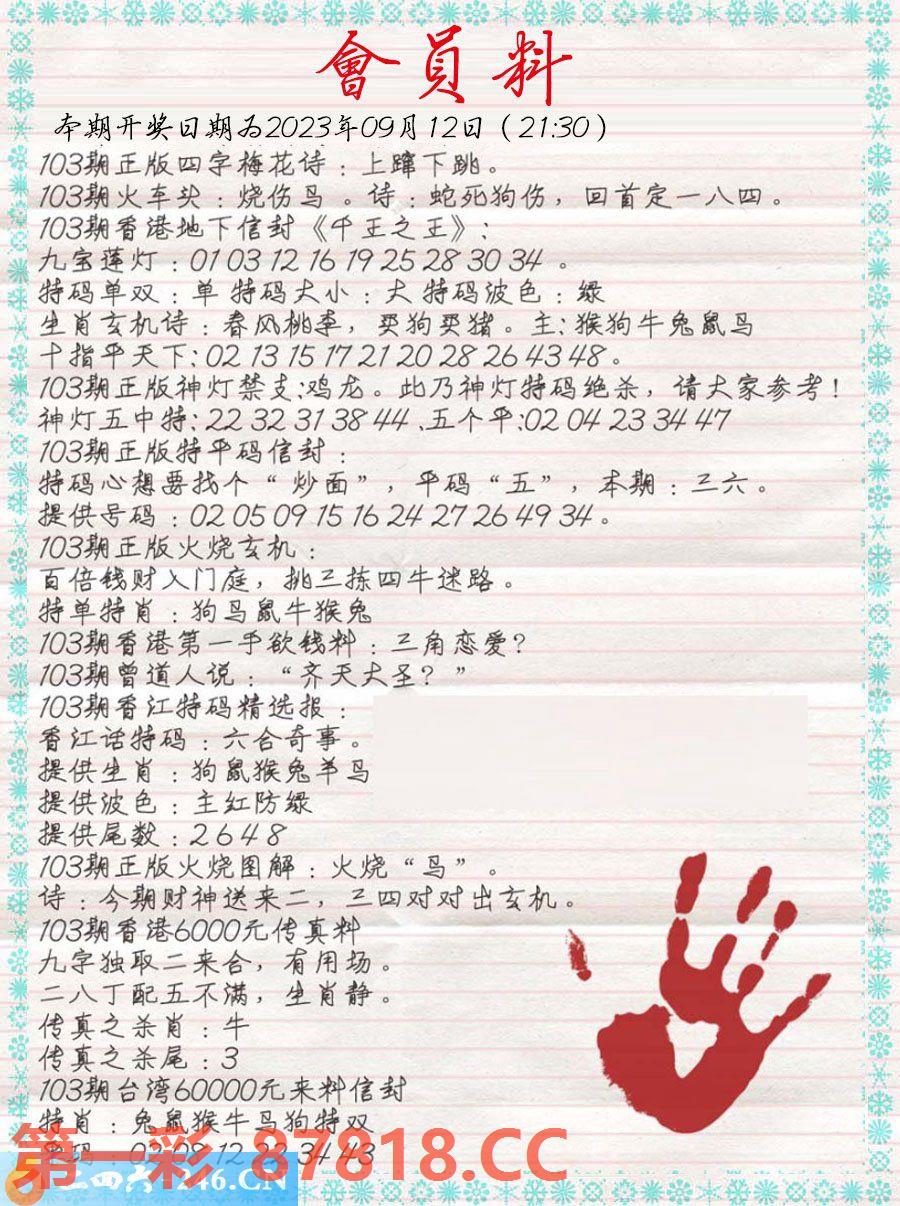 會員料
本期开奖日期为2023年09月12日（21:30）
103期正版四字梅花诗：上蹿下跳。
103期火车头：烧伤鸟 。诗：蛇死狗伤，回首定一八四。
103期香港地下信封《千王之王》：
九宝莲灯：01 03 12 16 19 25 28 30 34 。
特码单双：单 特码大小：大 特码波色：绿
生肖玄机诗：春风桃李，买狗买猪。主：猴狗牛兔鼠鸟
十指平天下：02 13 15 17 21 20 28 26 43 48。
103期正版神灯禁支：鸡龙。此乃神灯特码绝杀，请大家参考！
神灯五中特：22 32 31 38 44 .五个平：02 04 23 34 47
103期正版特平码信封：
特码心想要找个“炒面”，平码“五”，本期：三六。
提供号码：02 05 09 15 16 24 27 26 49 34。
103期正版火烧玄机：
百倍钱财入门庭，挑三拣四牛迷路。
特单特肖：狗鸟鼠牛猴兔
103期香港第一手欲钱料：三角恋爱？
103期曾道人说：“齐天大圣？”
103期香江特码精选报：
香江话特码：六合奇事。
提供生肖：狗鼠猴兔羊鸟
提供波色：主红防绿
提供尾数：2 6 4 8
103期正版火烧图解：火烧“鸟”。
诗：今期财神送来二，三四对对出玄机。
103期香港6000元传真料
九字独取二来合，有用场。
二八丁配五不满，生肖静。
传真之杀肖：牛
传真之杀尾：3
103期台湾60000元来料信封
特肖：兔鼠猴牛鸟狗特双
08 12 34 43
第一彩 87818.CC
二四六 246.CN